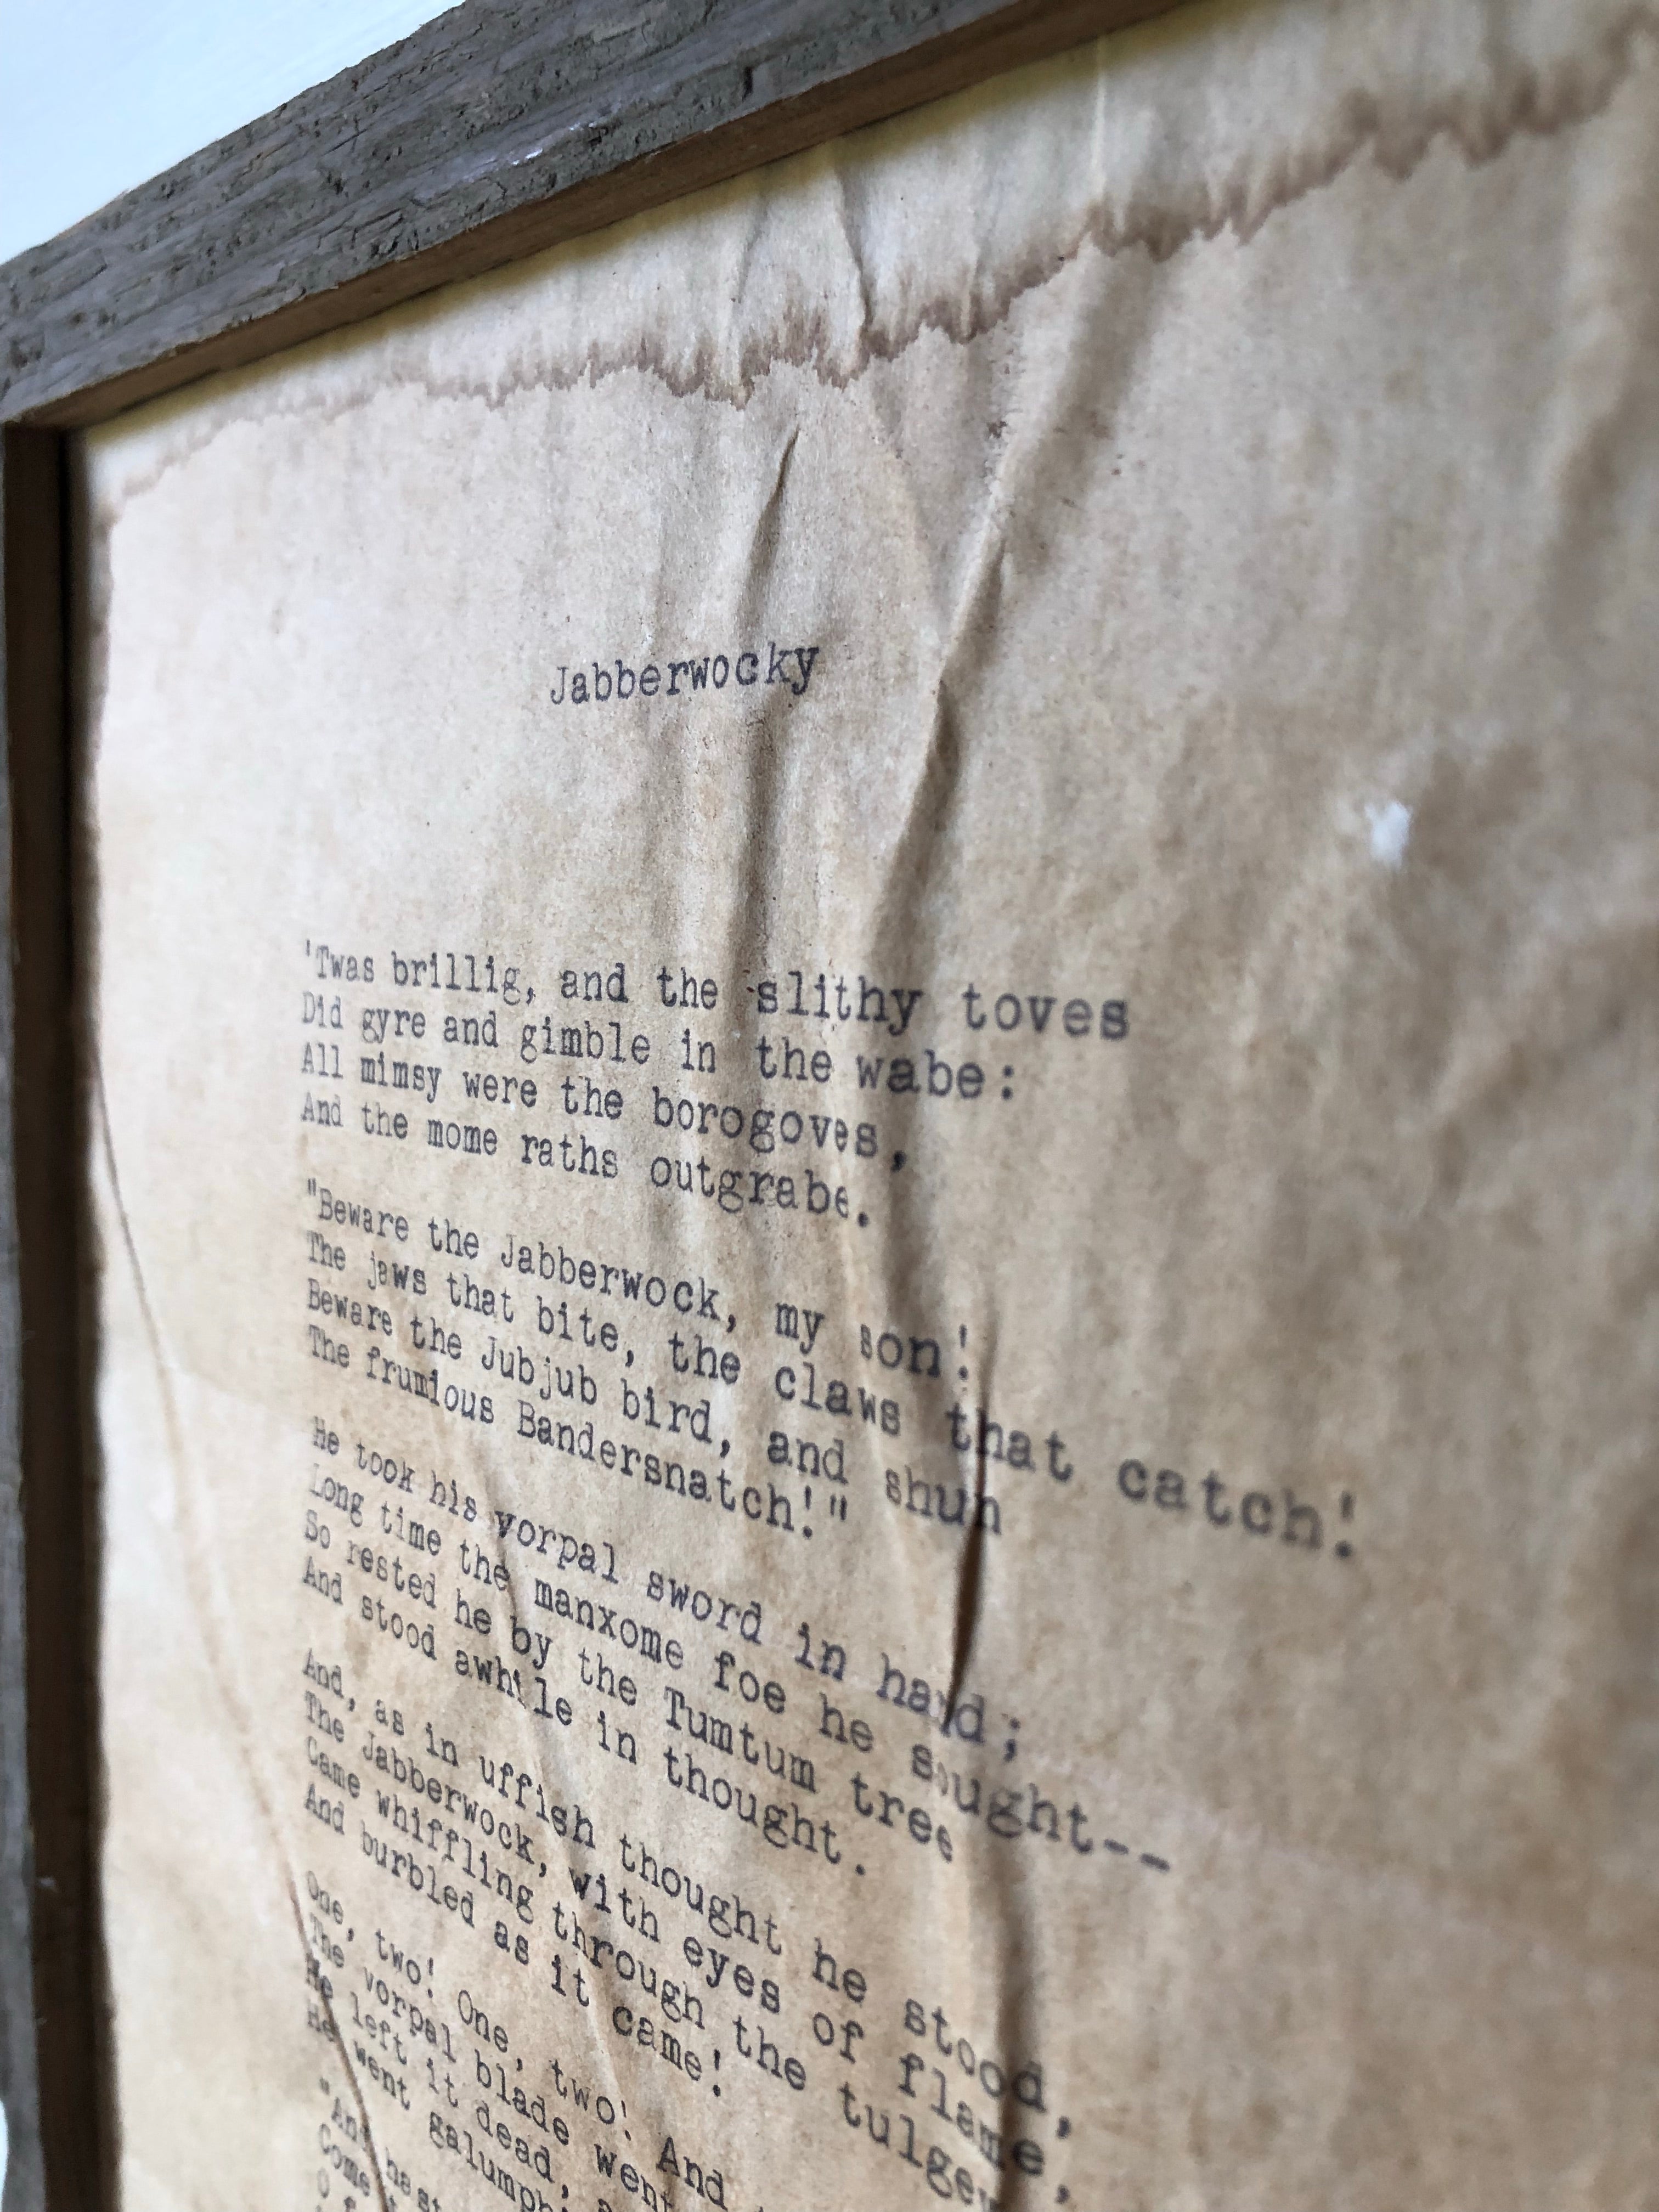 Jabberwocky
'Twas brillig, and the slithy toves
Did gyre and gimble in the wabe:
All mimsy were the borogoves,
And the mome raths outgrabe.
"Beware the Jabberwock, my son!
The jaws that bite, the claws that catch!
Beware the Jubjub bird, and shun
The frumious Bandersnatch!"
He took his vorpal sword in hand;
Long time the manxome foe he sought--
So rested he by the Tumtum tree
And stood awhile in thought.
And, as in uffish thought he stood,
The Jabberwock, with eyes of flame,
Came whiffling through the tulgey
And burbled as it came!
One, two! One, two! And
The vorpal blade went
He left it dead,
He went galumph
"And hast
Come